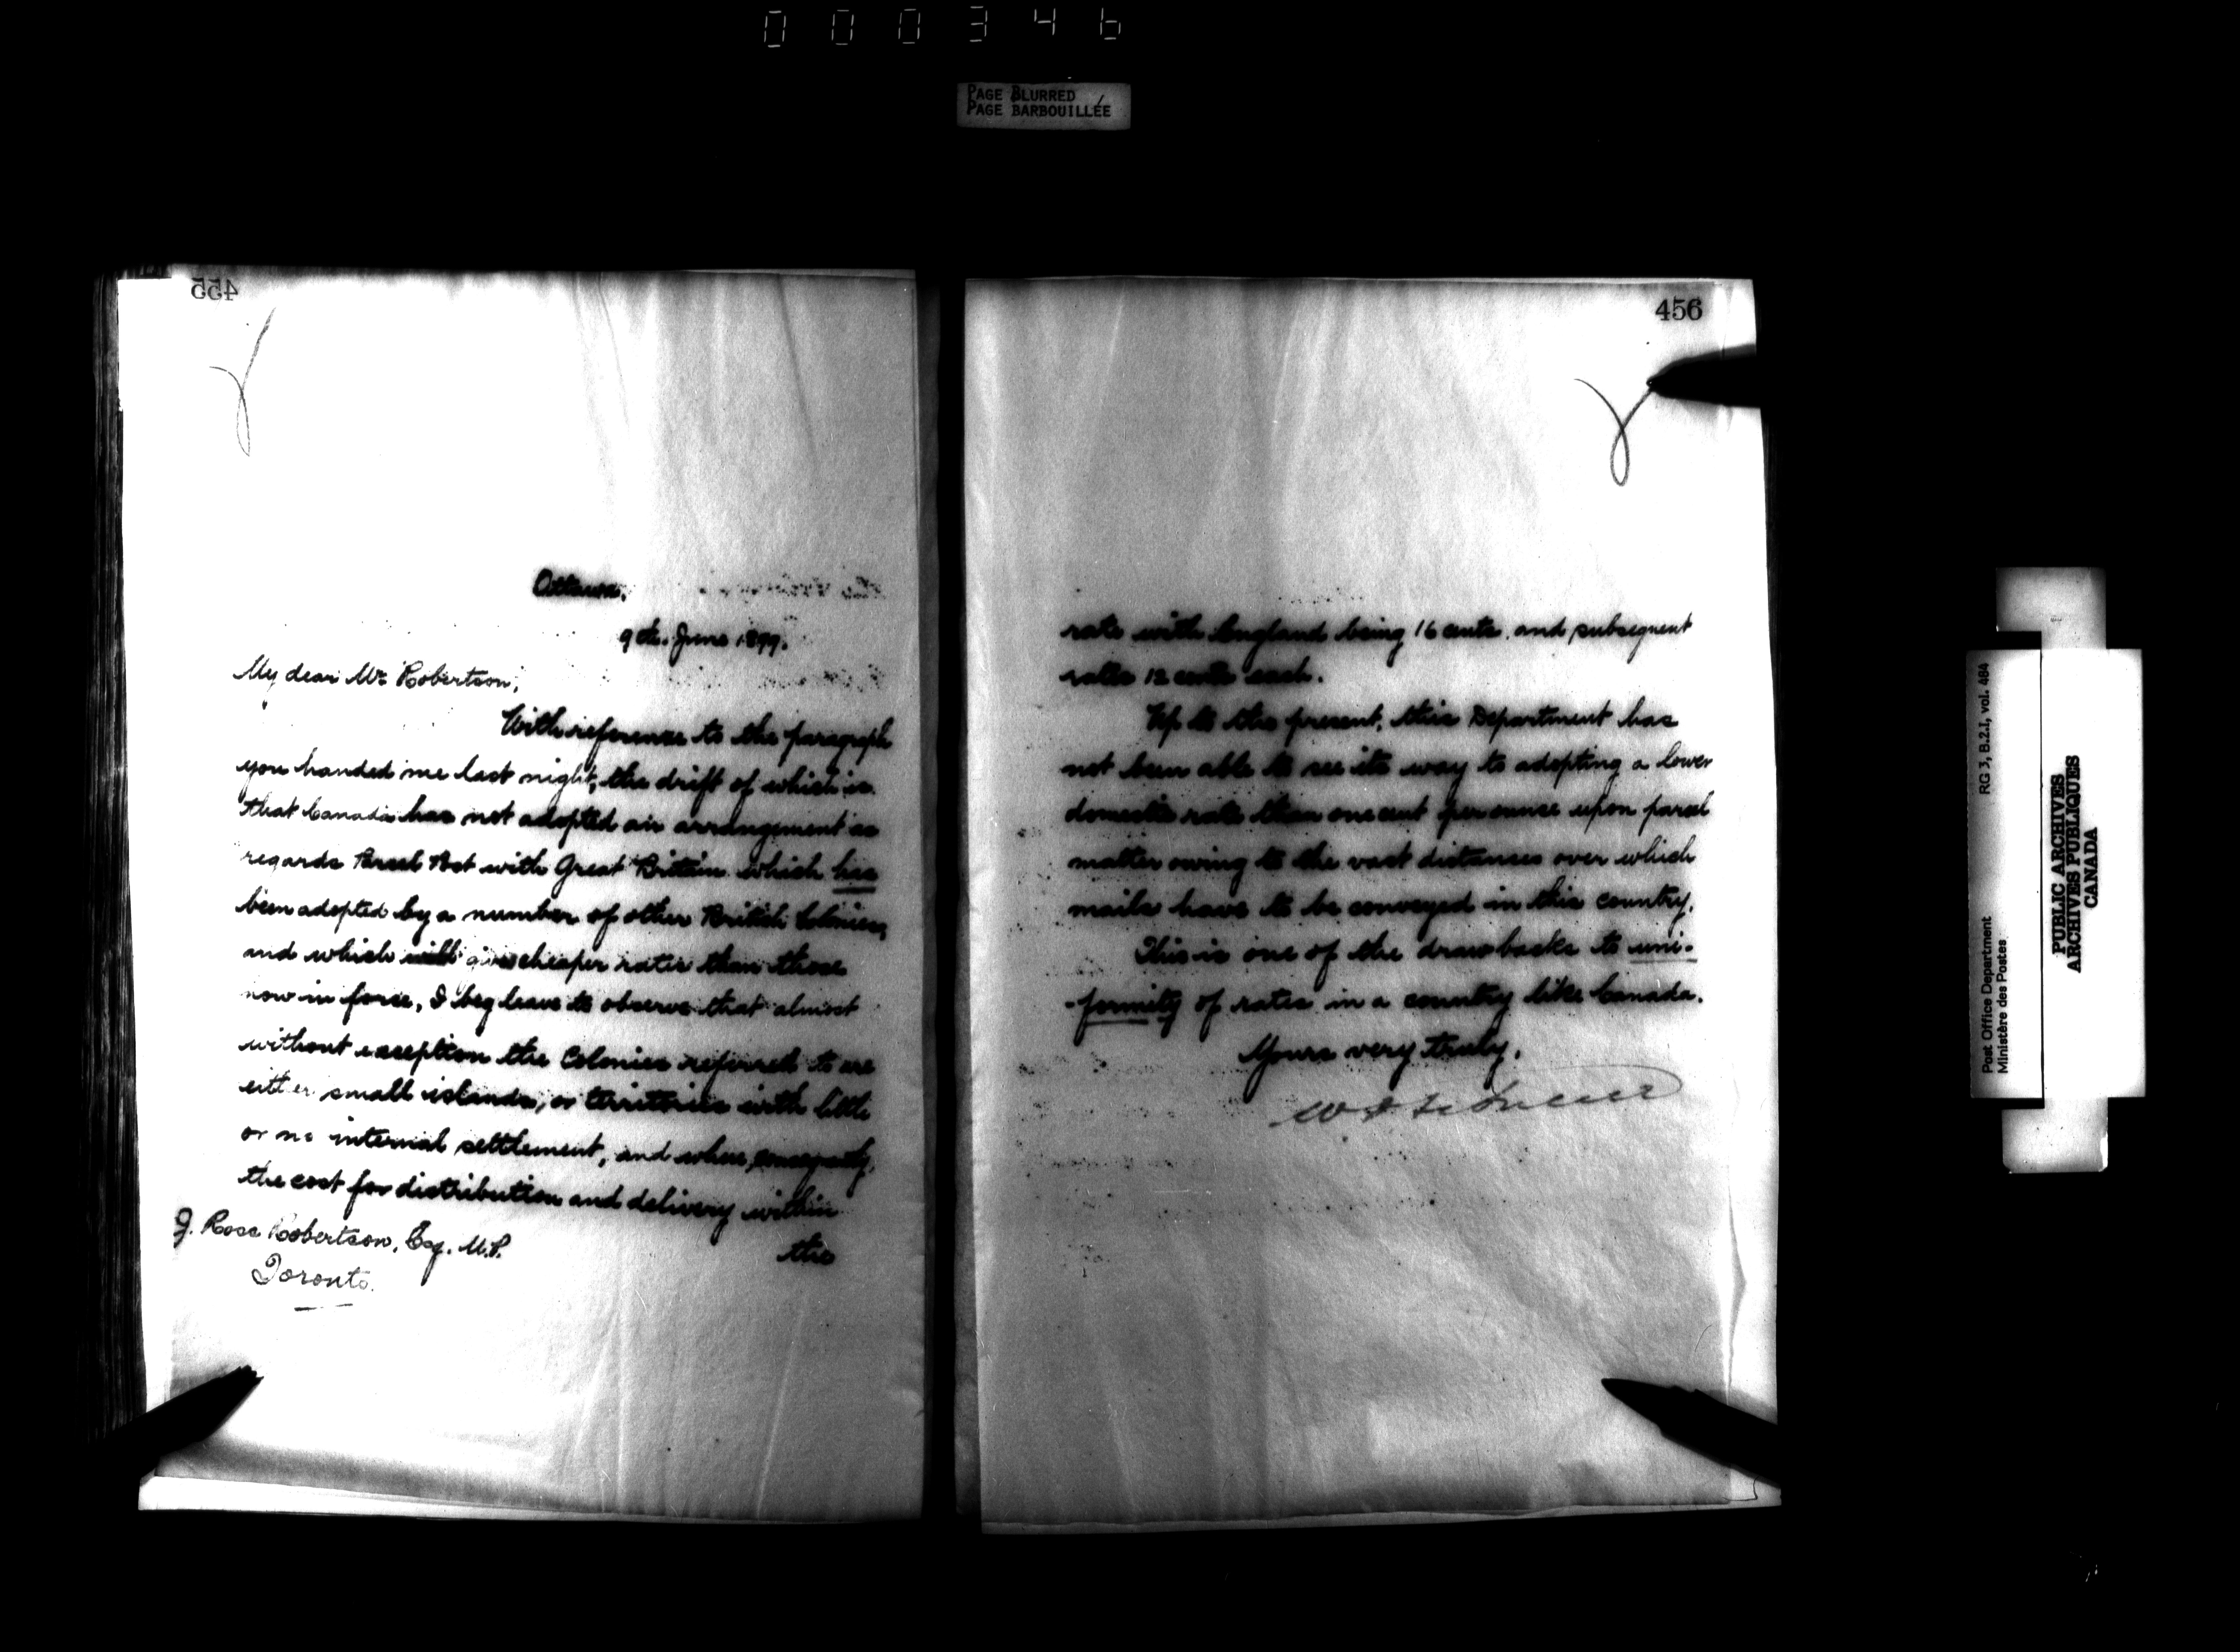 000346
PAGE BLURRED
PAGE BARBOUILLÉE
455
Ottawa,
9th. June 1899.
My dear Mr. Robertson,
With reference to the paragraph
you handed me last night, the drift of which is
that Canada has not adopted an arrangement as
regards Parcel Post with Great Britain which has
been adopted by a number of other British Colonies,
and which will give cheaper rates than those
now in force, I beg leave to observe that almost
without exception the Colonies referred to are
either small islands, or territories with little
or no internal settlement, and where, consequently,
the cost for distribution and delivery within
the
J. Ross Robertson, Esq. M.P.
Toronto.
456
rate with England being 16 cents, and subsequent
rates 12 cents each.
Up to the present, this Department has
not been able to see its way to adopting a lower
domestic rate than one cent per ounce upon parcel
matter owing to the vast distances over which
mails have to be conveyed in this country.
This is one of the drawbacks to uni-
-formity of rates in a country like Canada.
Yours very truly,
Post Office Department RG 3, B.2.I, vol. 484
Ministère des Postes
PUBLIC ARCHIVES
ARCHIVES PUBLIQUES
CANADA